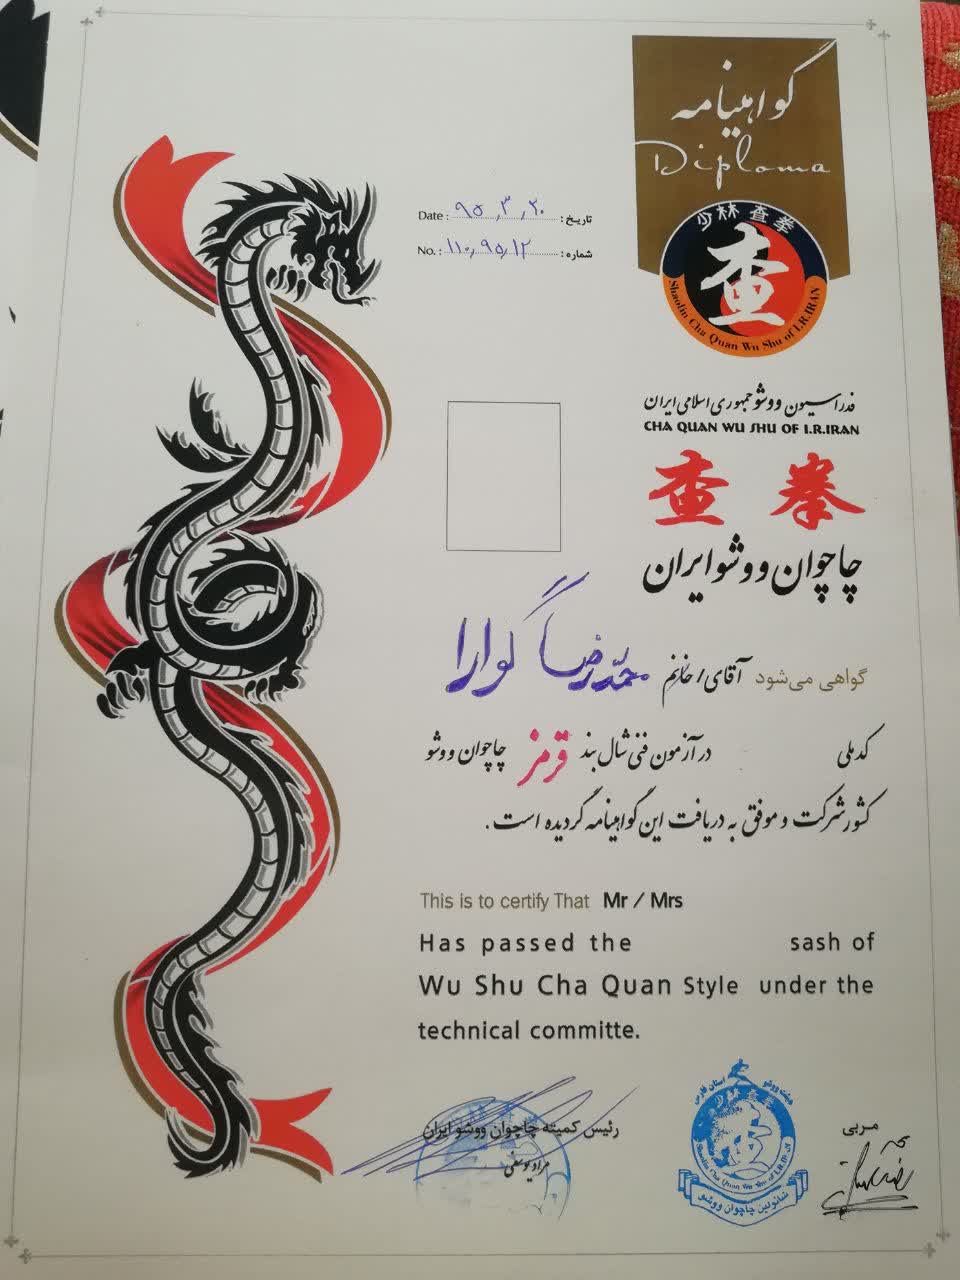 گواهینامه
Diploma
少林查拳
查
Shaolin Cha Quan Wu Shu of I.R.IRAN
Date : ۹۵,۳,۲۰ تاریخ :
No. : ۱۱۰,۹۵,۱۲ شماره :
فدراسیون ووشو جمهوری اسلامی ایران
CHA QUAN WU SHU OF I.R.IRAN
查 拳
چاچوان ووشو ایران
گواهی می‌شود آقای / خانم محمدرضا گوارا
کد ملی در آزمون فنی شال بند قرمز چاچوان ووشو
کشور شرکت و موفق به دریافت این گواهینامه گردیده است .
This is to certify That Mr / Mrs
Has passed the sash of
Wu Shu Cha Quan Style under the
technical committe.
رئیس کمیته چاچوان ووشو ایران
مراد یوسفی
هیئت ووشو استان فارس
少林查拳
Shaolin Cha Quan Wu Shu of I.R.IRAN
شائولین چاچوان ووشو
مربی